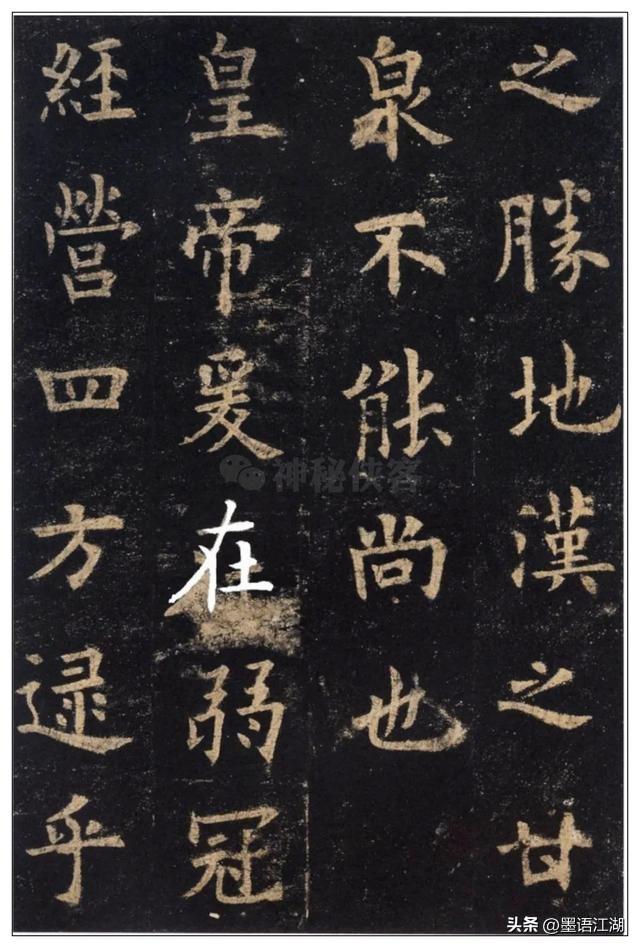 之勝地漢之甘
泉不能尚也
皇帝爰在弱冠
經營四方逯乎
神秘侠客
头条 @墨语江湖